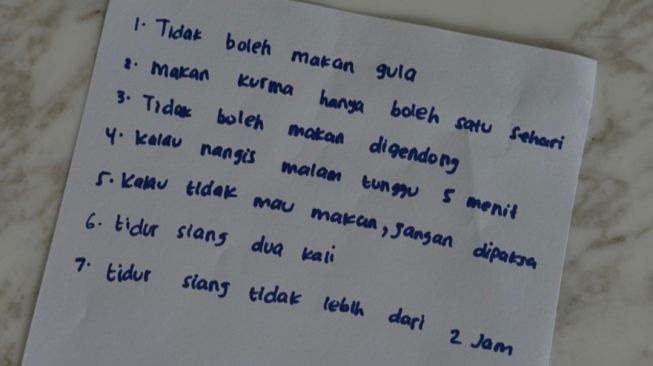 1. Tidak boleh makan gula
2. makan kurma hanya boleh satu sehari
3. Tidak boleh makan digendong
4. kalau nangis malam tunggu 5 menit
5. kalau tidak mau makan, jangan dipaksa
6. tidur siang dua kali
7. tidur siang tidak lebih dari 2 jam